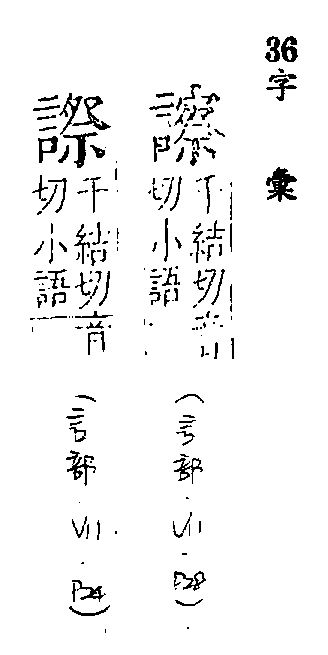 36字彙
千結切音
切小語
(言部·VII·P28)
千結切音
切小語
(言部·VII·P24)